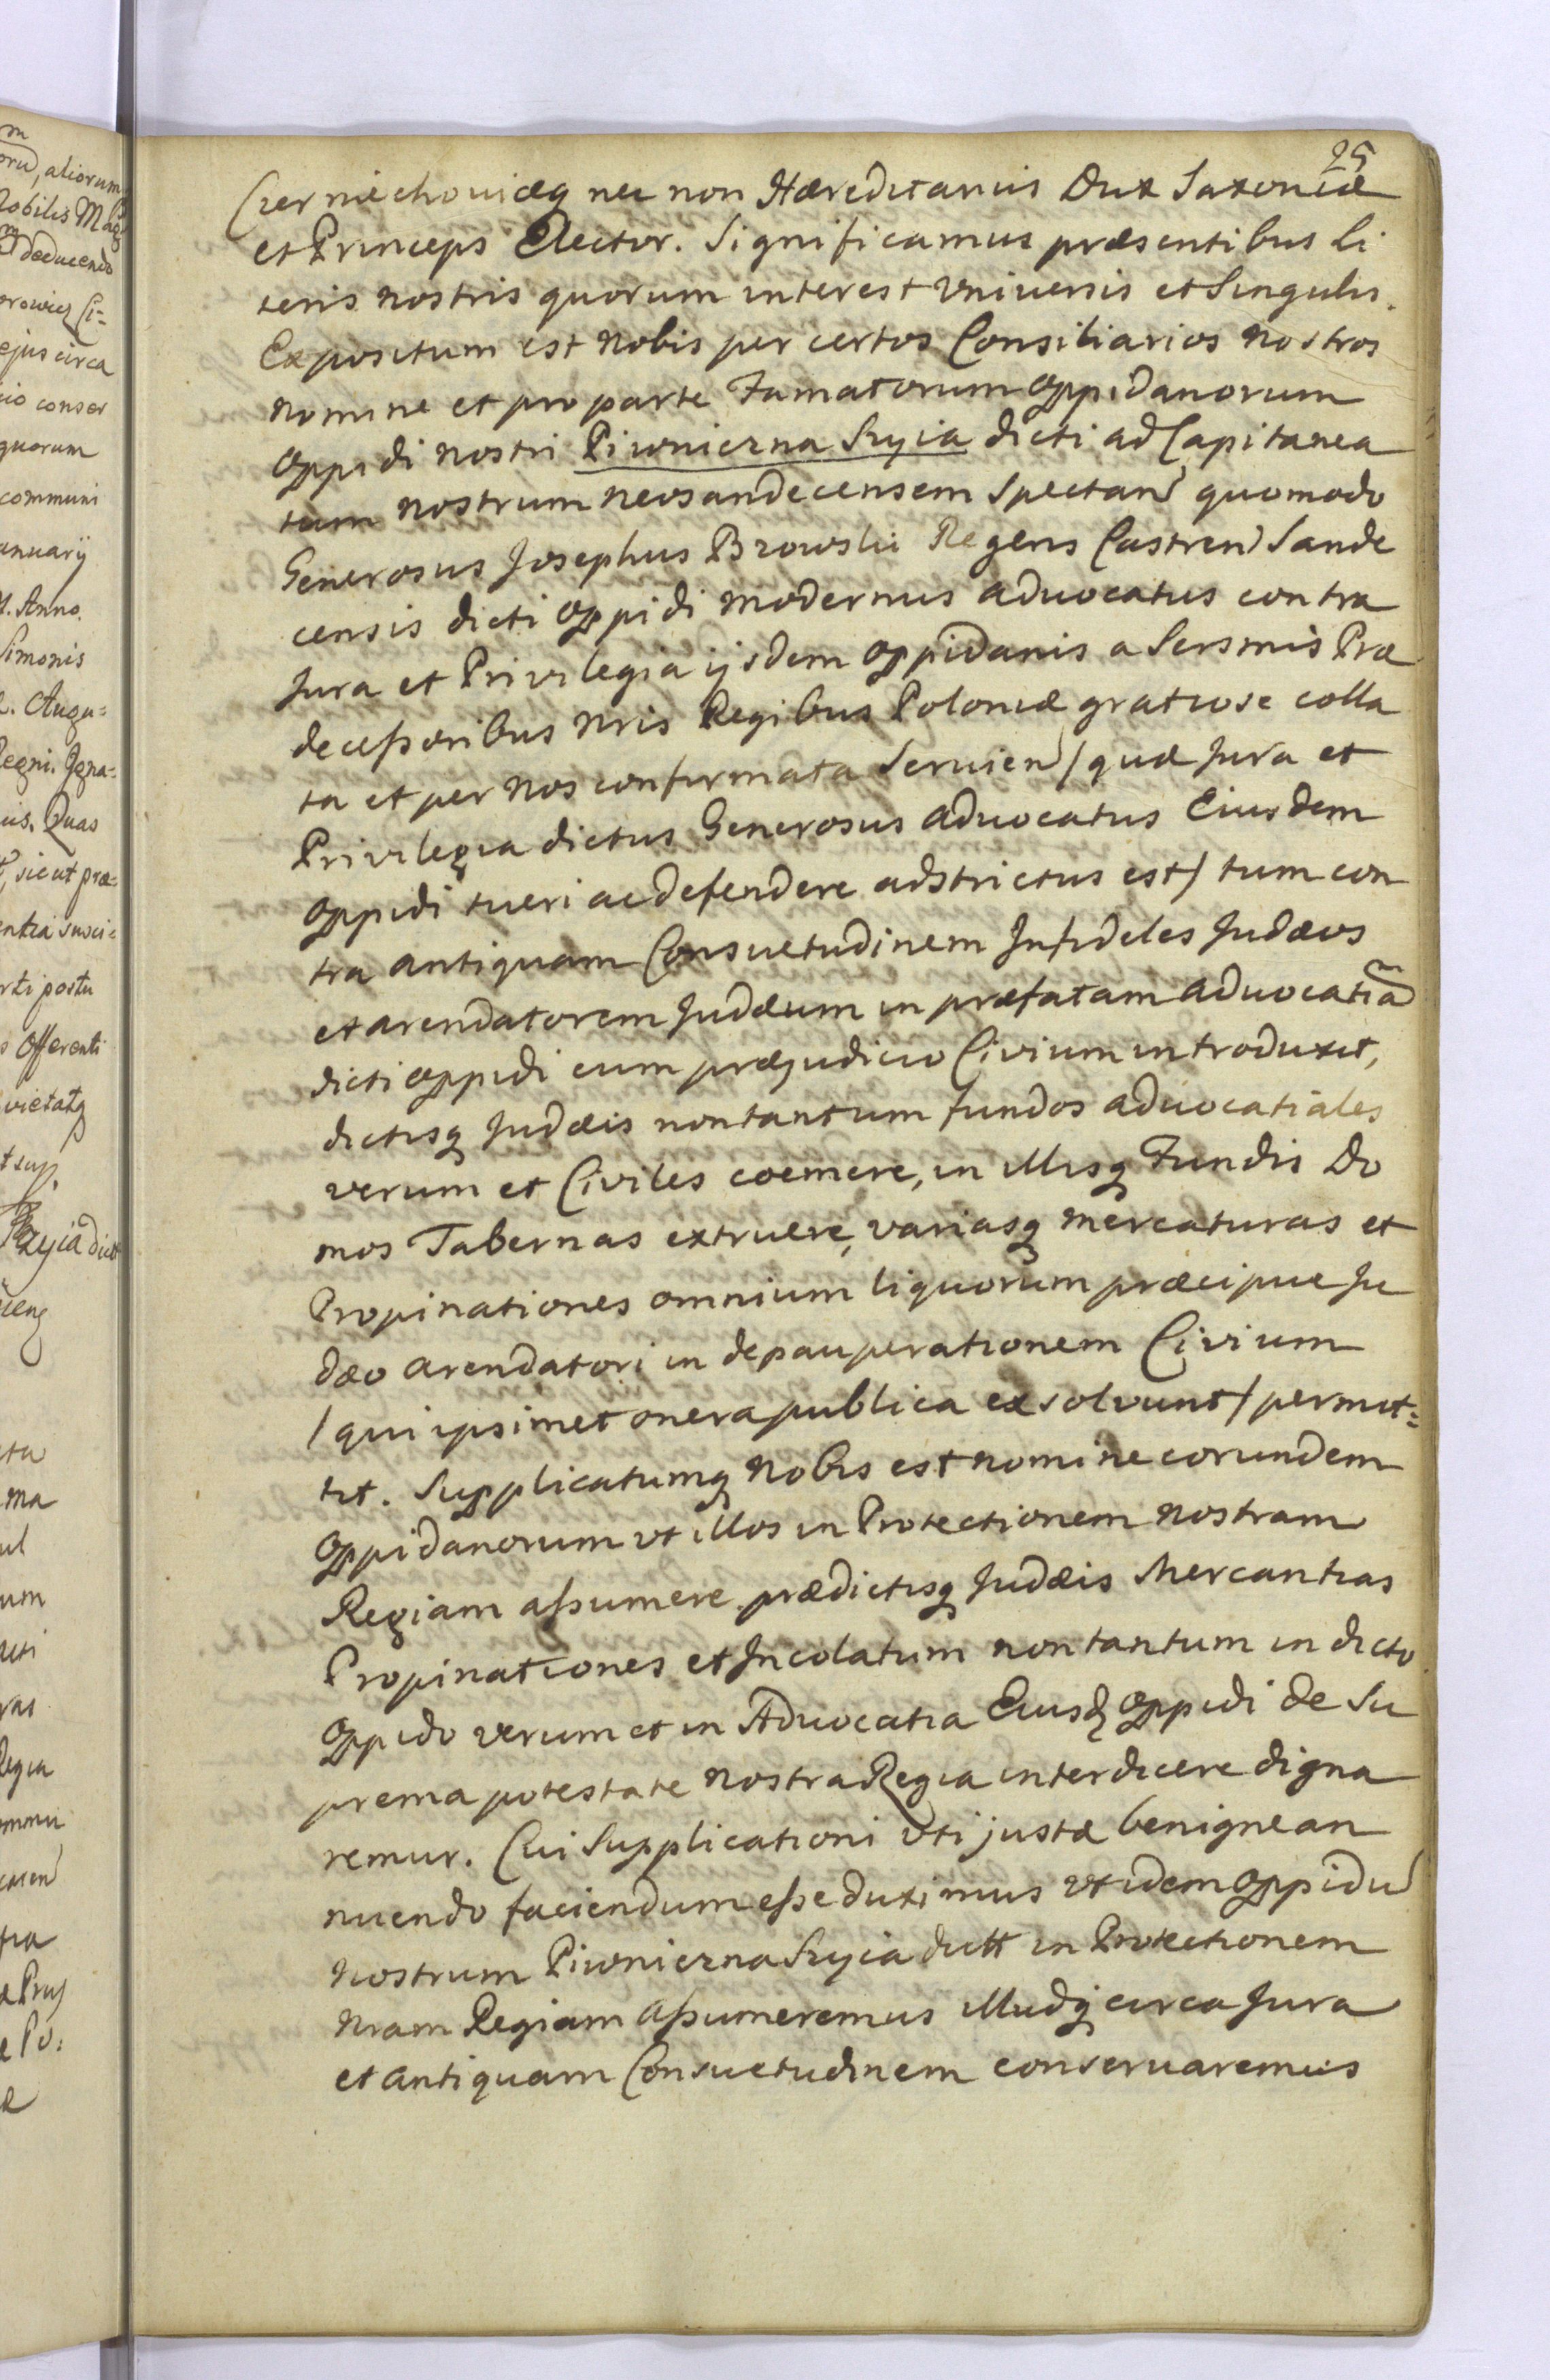 25
Czerniechoviæq nec non Hæreditarius Dux Saxoniæ
et Princeps Elector. Significamus præsentibus li
teris nostris quorum interest Vniuersis et Singulis.
Expositum est nobis per certos Consiliarios nostros
nomine et pro parte Famatorum Oppidanorum
Oppidi nostri Piwnierzna Szyia dicti ad Capitanea
tum nostrum neosandecensem spectan quomodo
Generosus Josephus Brzowski Regens Castren Sande
censis dicti Oppidi modernus aduocatus contra
Jura et Privilegia ijsdem Oppidanis a Sersmis Præ
decessoribus Nris Regibus Poloniæ gratiose colla
ta et per nos confirmata Seruien / quæ Jura et
Privilegia dictus Generosus aduocatus Eiusdem
Oppidi tueri ac defendere adstrictus est / tum con
tra antiquam Consuetudinem Infideles Judæos
et arendatorem Judæum in præfatam aduocatiã
dicti Oppidi cum præjudicio Civium introduxit,
dictisq Judæis non tantum fundos aduocatiales
verum et Civiles coemere, in illisq Fundis Do
mos Tabernas extruere, variasq mercaturas et
Propinationes omnium liquorum præcipue Ju
dæo arendatori in depauperationem Civium
/ qui ipsimet onera publica exsolvunt / permit=
tit. Supplicatumq Nobis est nomine eorundem
Oppidanorum vt illos in Protectionem nostram
Regiam assumere prædictisq Judæis Mercantias
Propinationes et Incolatum non tantum in dicto
Oppido verum et in Aduocatia Eiusd Oppidi de Su
prema potestate nostra Regia interdicere digna
remur. Cui Supplicationi vti justæ benigne an
nuendo faciendum esse duximus vt idem Oppidu
nostrum Piwnierzna Szyia dictt in Protectionem
Nram Regiam assumeremus illudq circa Jura
et antiquam Consuetudinem conseruaremus